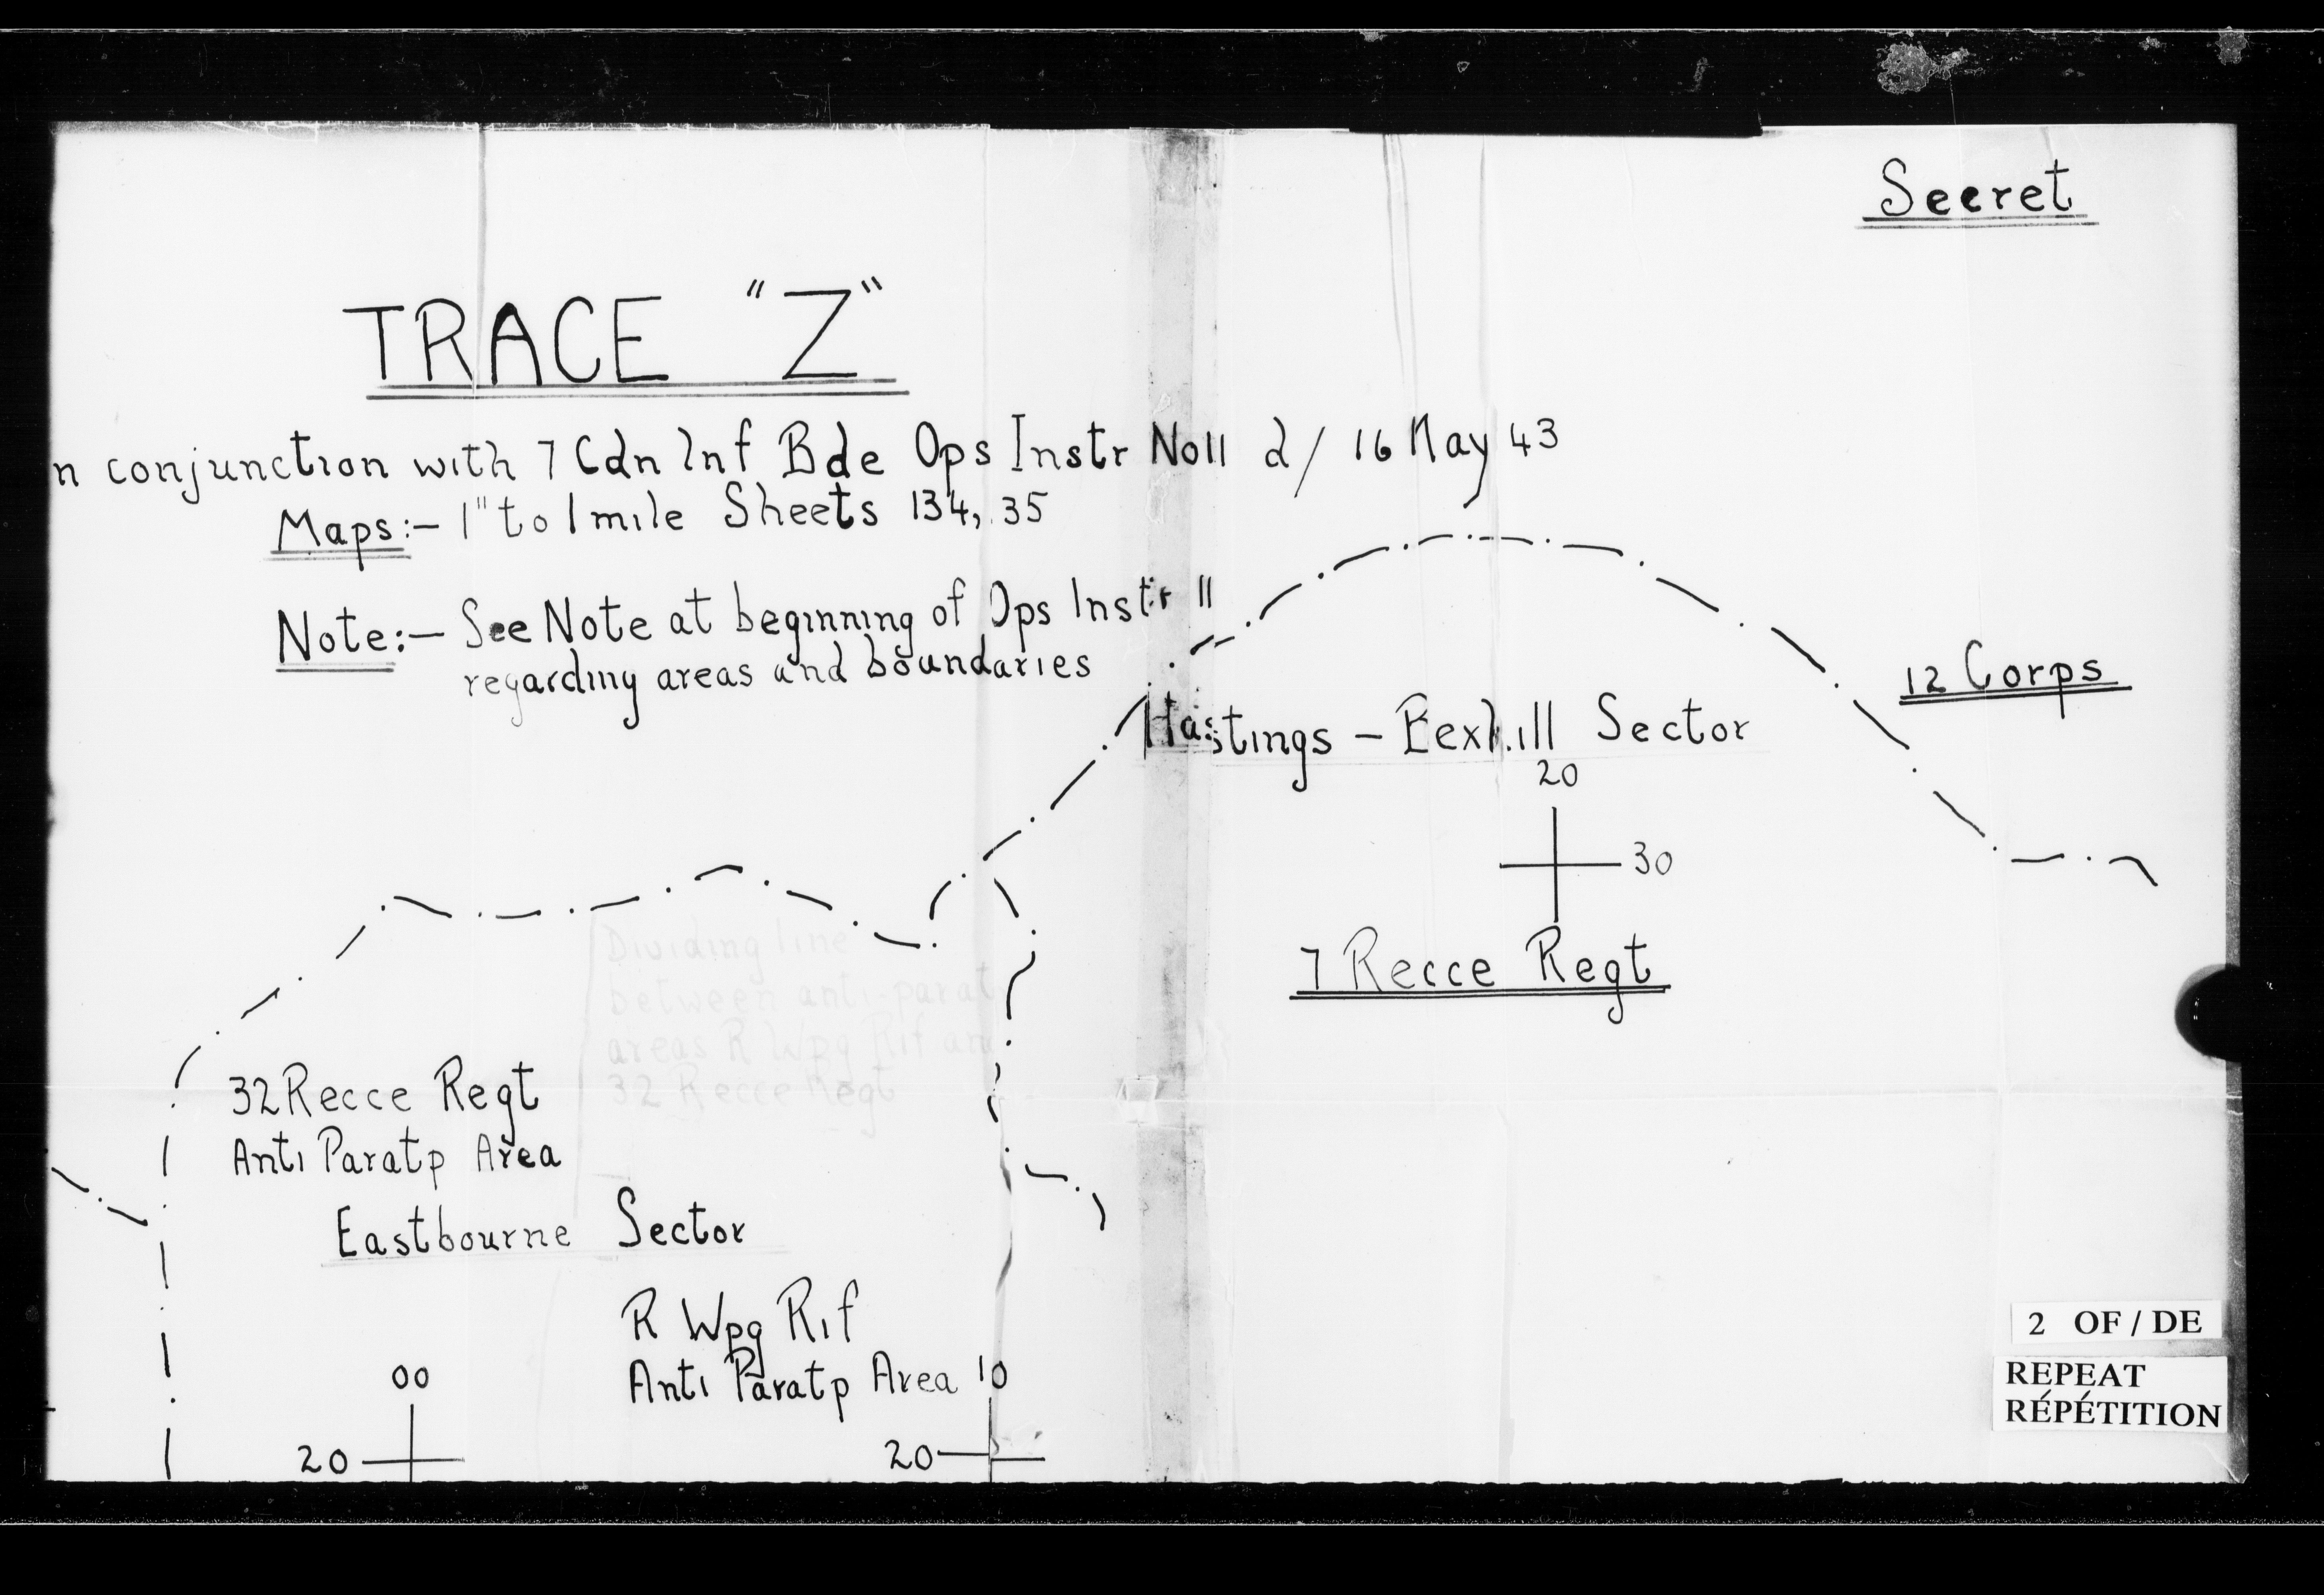 Secret
TRACE "Z"
n conjunction with 7 Cdn Inf Bde Ops Instr No11 d/ 16 May 43
Maps:- 1" to 1 mile Sheets 134, 35
Note:- See Note at beginning of Ops Instr 11
regarding areas and boundaries
12 Corps
Hastings - Bexhill Sector
20
30
7 Recce Regt
Dividing line
between anti-parat
areas R Wpg Rif an
32 Recce Regt
32 Recce Regt
Anti Paratp Area
Eastbourne Sector
R Wpg Rif
Anti Paratp Area
00
20
10
20
2 OF / DE
REPEAT
RÉPÉTITION